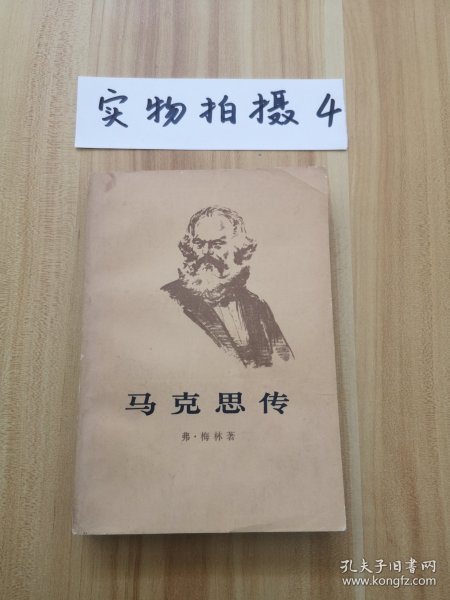 实物拍摄4
马克思传
弗·梅林著
孔夫子旧书网
www.kongfz.com